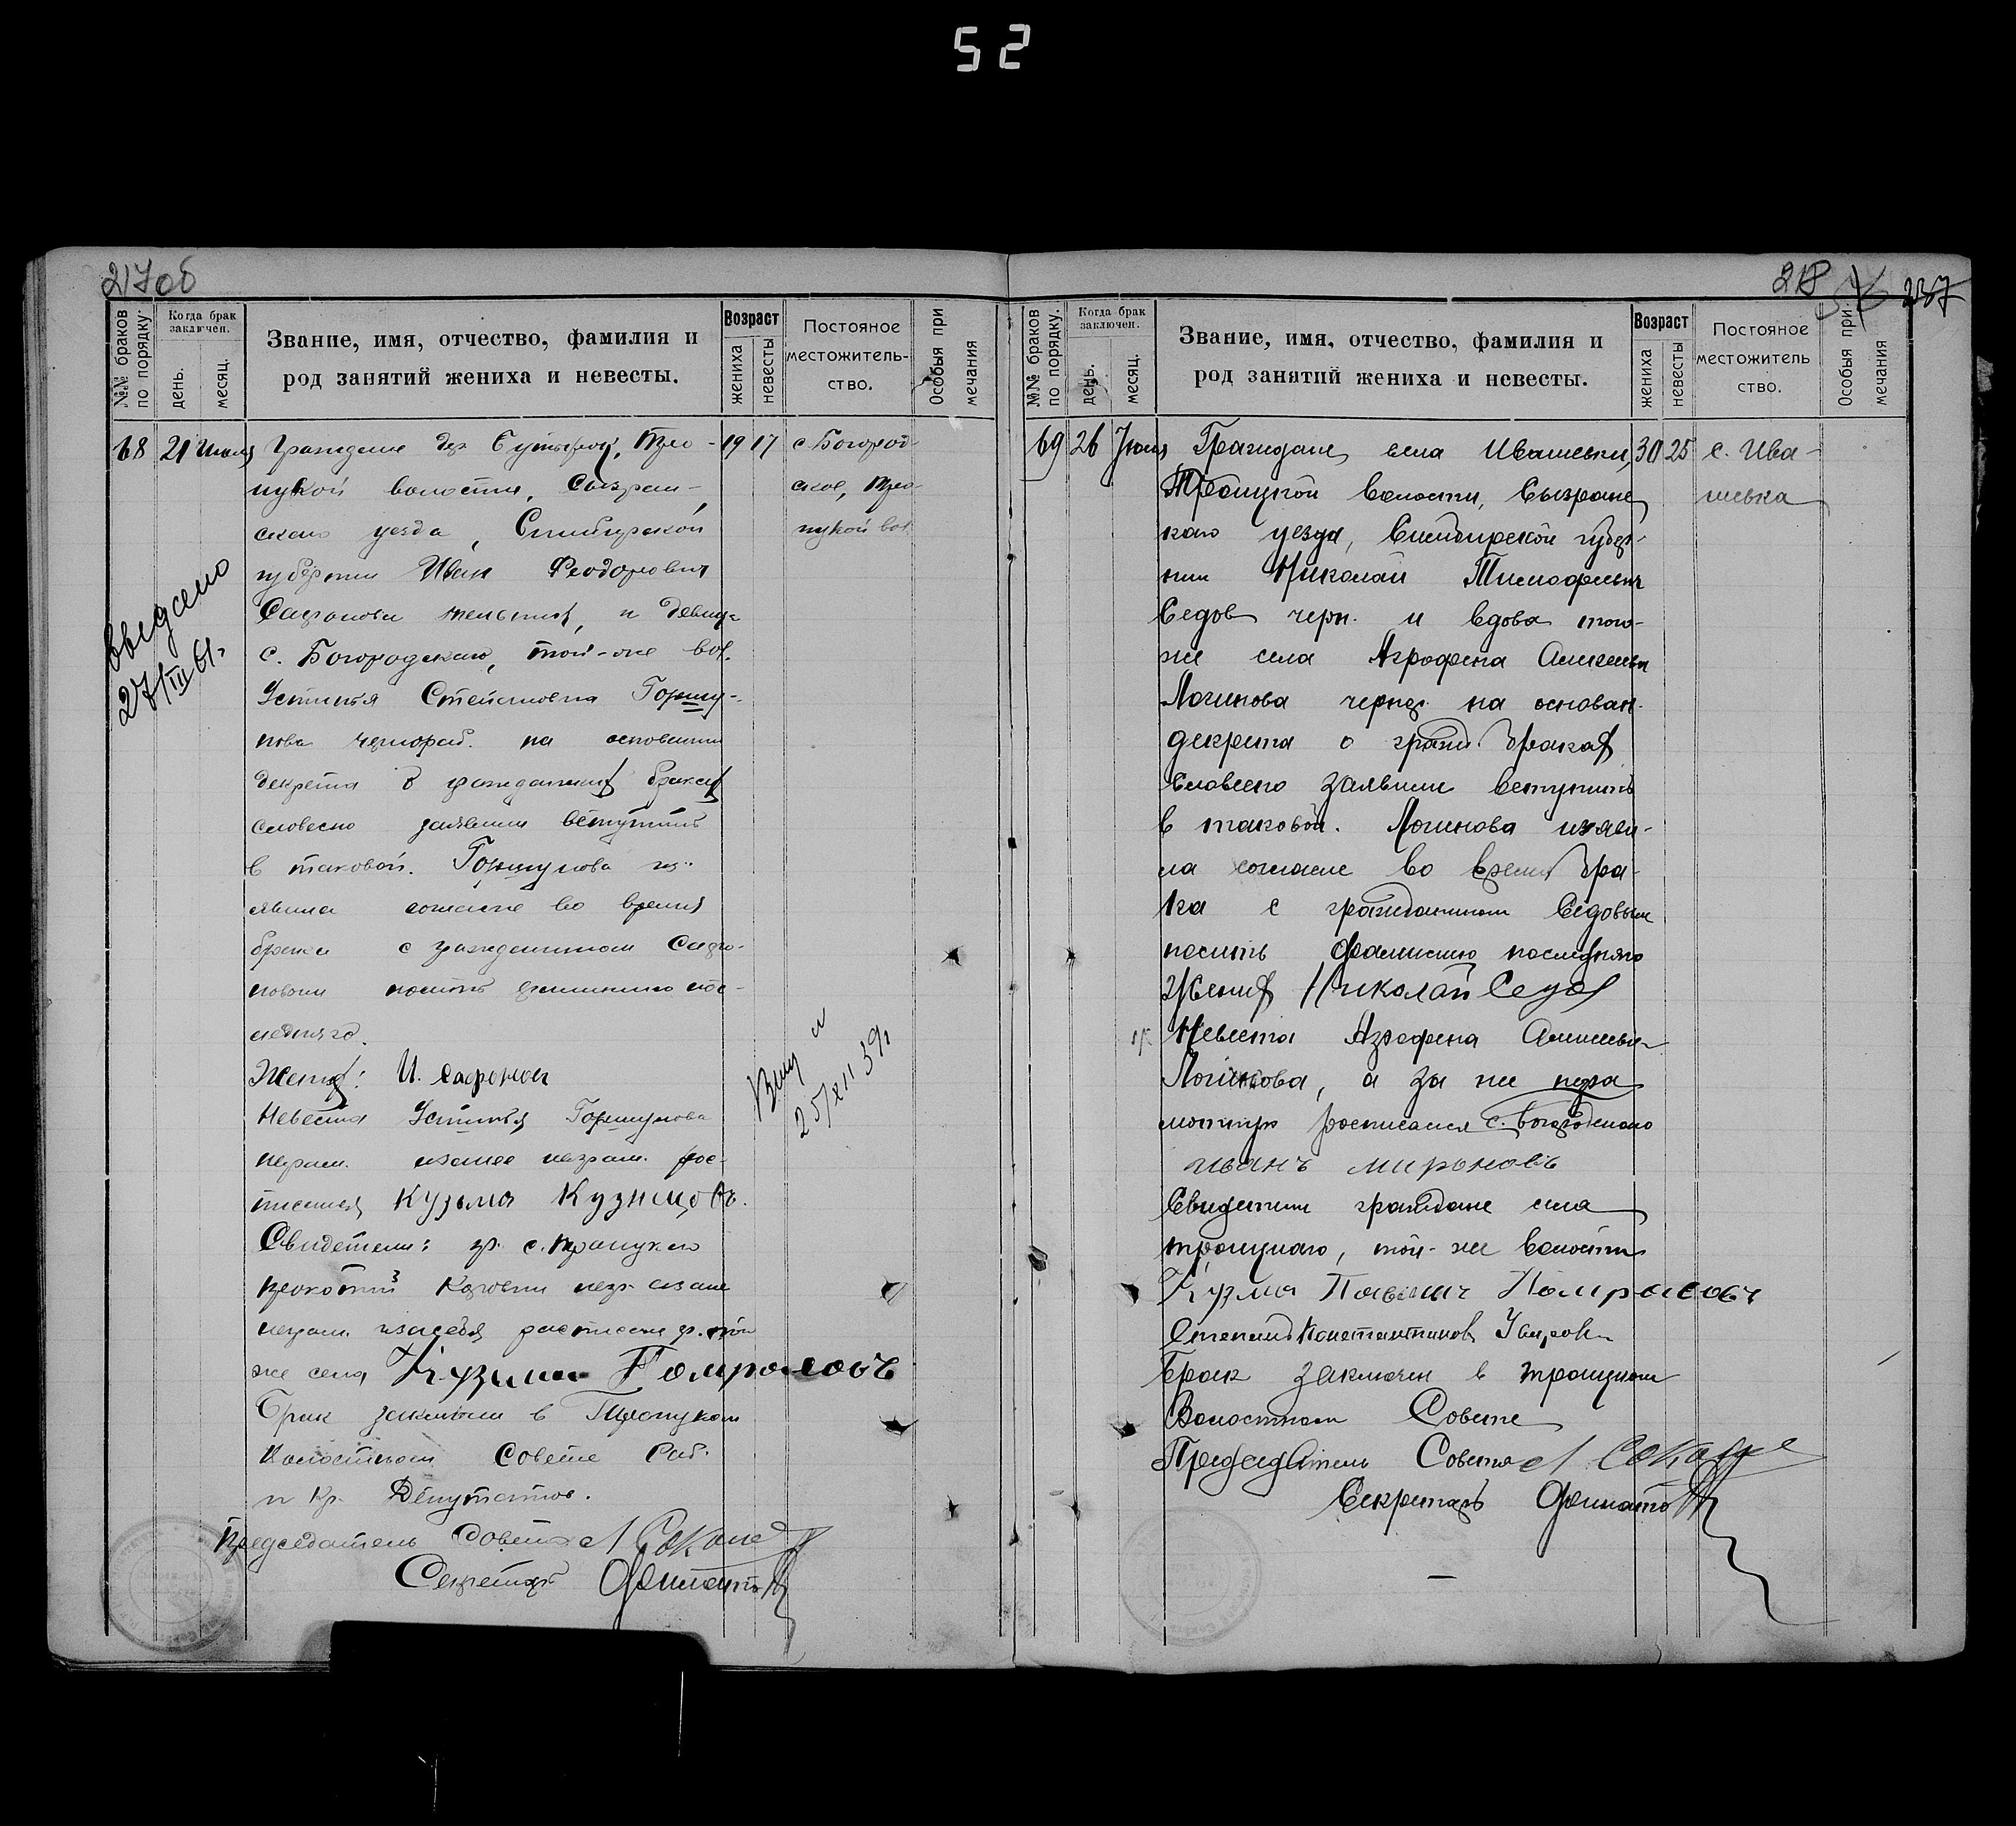 52
217об
№№ браков по порядку.
Когда брак заключен.
день.
месяц.
Звание, имя, отчество, фамилия и
род занятий жениха и невесты.
Возраст
жениха
невесты
Постояное
местожитель-
ство.
Особыя при
мечания
68 21 Июня Граждане дер. Тро- 19 17 с. Богород-
ицкой волости, Сызран- ское, Тро-
скаго уезда, Симбирской ицкой вол.
губернии Иван Феодорович
Сафонов и девица
с. Богородскаго, той-же вол.
Устинья Степановна Горшу-
нова чернораб. на основании
декрета о гражданских браках
словесно заявили вступить
в таковой. Горшунова из-
явила согласие во время
брака с гражданином Сафо-
новым носить фамилию пос-
ледняго.
Жених: И. Сафонов
Невеста Устинья Горшунова
неграм. неграм. рос-
писался Кузьма Кузнецовъ.
Свидетели: гр. с. Троицкаго
неграм. расписался гр. той
же села Кузьма
Брак заключен в Троицком
Волостном Совете Раб.
и Кр. Депутатов.
Председатель Совета
Секретарь
27/III 61г.
25/XII 39г
218
237
№№ браков по порядку.
Когда брак заключен.
день.
месяц.
Звание, имя, отчество, фамилия и
род занятий жениха и невесты.
Возраст
жениха
невесты
Постояное
местожитель
ство.
Особыя при
мечания
69 26 Июня Граждане села Ивашевки, 30 25 с. Ива-
Троицкой волости, Сызранс шевка
каго уезда, Симбирской губер-
нии Николай Тимофеевич
Седов черн. и вдова того-
же села Агрофена Алексеевна
Логинова чернор. на основан.
декрета о гражд. браках
словесно заявили вступить
в таковой. Логинова изяви-
ла согласие во время бра-
ка с гражданином Седовым
носить фамилию последняго
Жених Николай Седов
Невеста Агрофена Алексеевна
Логинова, а за нее негра
мотную росписался с. Богородскаго
иванъ мироновъ
Свидетели граждане села
Троицкаго, той-же волости
Кузма
Степанъ Константинов
Брак заключен в Троицком
Волостном Совете
Председатель Совета
Секретарь